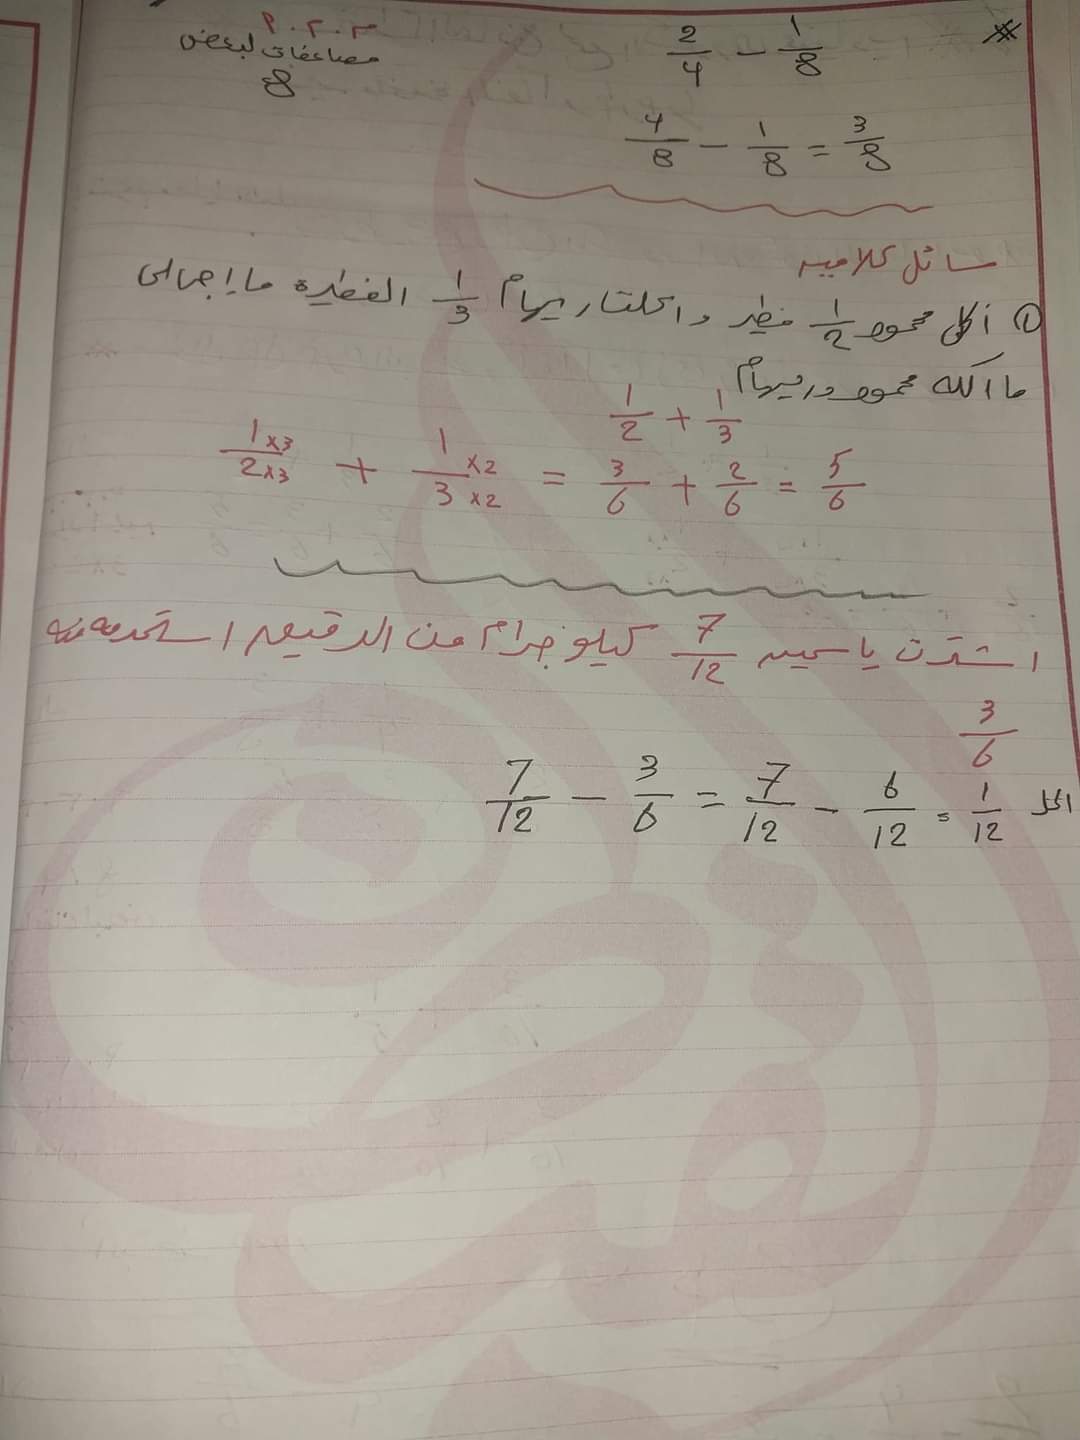 2/4 - 1/8
م . م . م
مضاعفات لبعض
8
4/8 - 1/8 = 3/8
مسائل كلامية
① أكل محمود 1/2 فطيرة واكلت ريهام 1/3 الفطيرة ما إجمالى
ما اكله محمود وريهام
1/2 + 1/3
1×3/2×3 + 1×2/3×2 = 3/6 + 2/6 = 5/6
اشترت ياسمين 7/12 كيلو جرام من الدقيق استخدمت منه
3/6
الحل 7/12 - 3/6 = 7/12 - 6/12 = 1/12